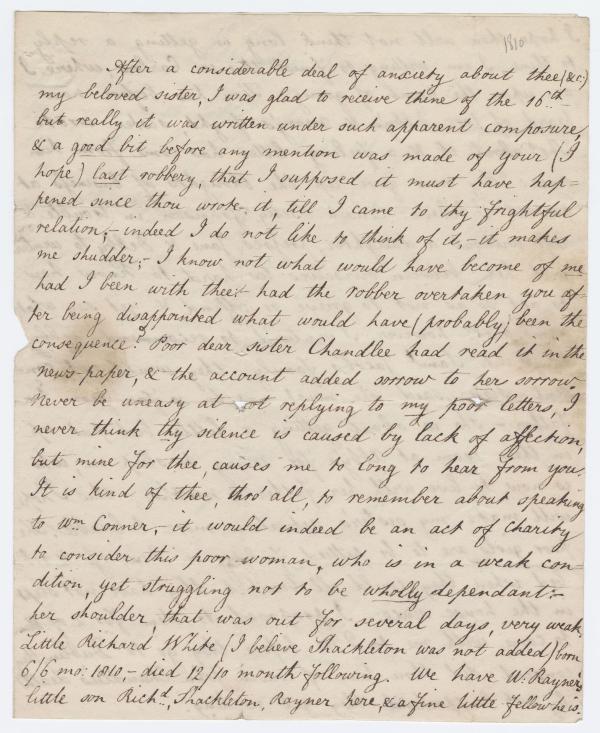 1810
After a considerable deal of anxiety about thee (&c:)
my beloved sister, I was glad to receive thine of the 16th.-
but really it was written under such apparent composure,
& a good bit before any mention was made of your (I
hope) last robbery, that I supposed it must have hap=
pened since thou wrote it, till I came to thy frightful
relation;- indeed I do not like to think of it,- it makes
me shudder:- I know not what would have become of me
had I been with thee:- had the robber overtaken you af=
ter being disappointed what would have (probably) been the
consequence? Poor dear sister Chandlee had read it in the
news-paper, & the account added sorrow to her sorrow
Never be uneasy at not replying to my poor letters, I
never think thy silence is caused by lack of affection,
but mine for thee, causes me to long to hear from you.
It is kind of thee, thro' all, to remember about speaking
to Wm Conner,- it would indeed be an act of charity
to consider this poor woman, who is in a weak con=
dition, yet struggling not to be wholly dependant:-
her shoulder, that was out for several days, very weak,
Little Richard White (I believe Shackleton was not added) born
6/6 mo: 1810,- died 12/10 month following. We have W. Rayner's
little son Richd, Shackleton, Rayner here, & a fine little fellow he is.